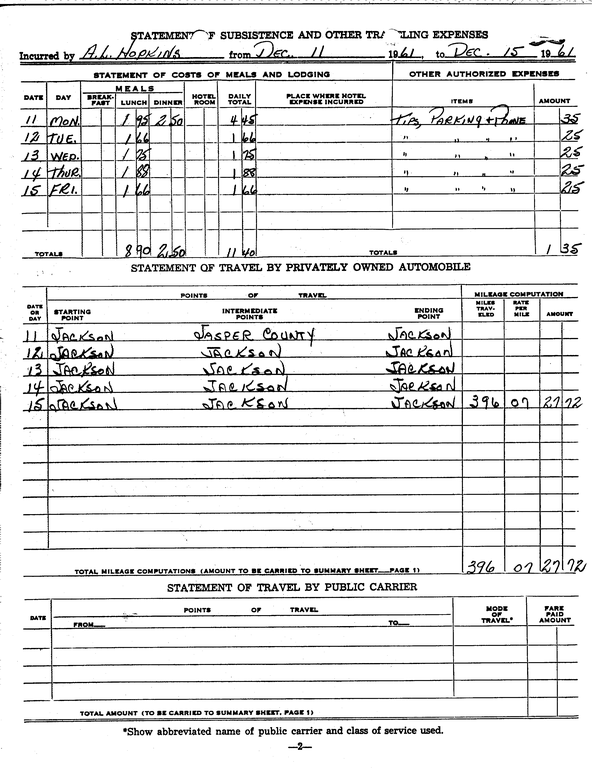 STATEMENT OF SUBSISTENCE AND OTHER TRAVELLING EXPENSES
Incurred by A.L. HOPKINS from DEC. 11 1961, to DEC. 15 1961
STATEMENT OF COSTS OF MEALS AND LODGING OTHER AUTHORIZED EXPENSES
DATE DAY MEALS BREAK-FAST LUNCH DINNER HOTEL ROOM DAILY TOTAL PLACE WHERE HOTEL EXPENSE INCURRED ITEMS AMOUNT
11 MON. 1 95 2 50 4 45 TIPS, PARKING & PHONE 35
12 TUE. 1 66 1 66 " " " " 25
13 WED. 1 75 1 75 " " " 25
14 THUR. 1 88 1 88 " " " " 25
15 FRI. 1 66 1 66 " " " " 25
TOTALS 8 90 2 50 11 40 TOTALS 1 35
STATEMENT OF TRAVEL BY PRIVATELY OWNED AUTOMOBILE
DATE OR DAY POINTS OF TRAVEL MILEAGE COMPUTATION
STARTING POINT INTERMEDIATE POINTS ENDING POINT MILES TRAV-ELED RATE PER MILE AMOUNT
11 JACKSON JASPER COUNTY JACKSON
12 JACKSON JACKSON JACKSON
13 JACKSON JACKSON JACKSON
14 JACKSON JACKSON JACKSON
15 JACKSON JACKSON JACKSON 396 07 27 72
TOTAL MILEAGE COMPUTATIONS (AMOUNT TO BE CARRIED TO SUMMARY SHEET—PAGE 1) 396 07 27 72
STATEMENT OF TRAVEL BY PUBLIC CARRIER
DATE POINTS OF TRAVEL MODE OF TRAVEL* FARE PAID AMOUNT
FROM— TO—
TOTAL AMOUNT (TO BE CARRIED TO SUMMARY SHEET, PAGE 1)
*Show abbreviated name of public carrier and class of service used.
—2—